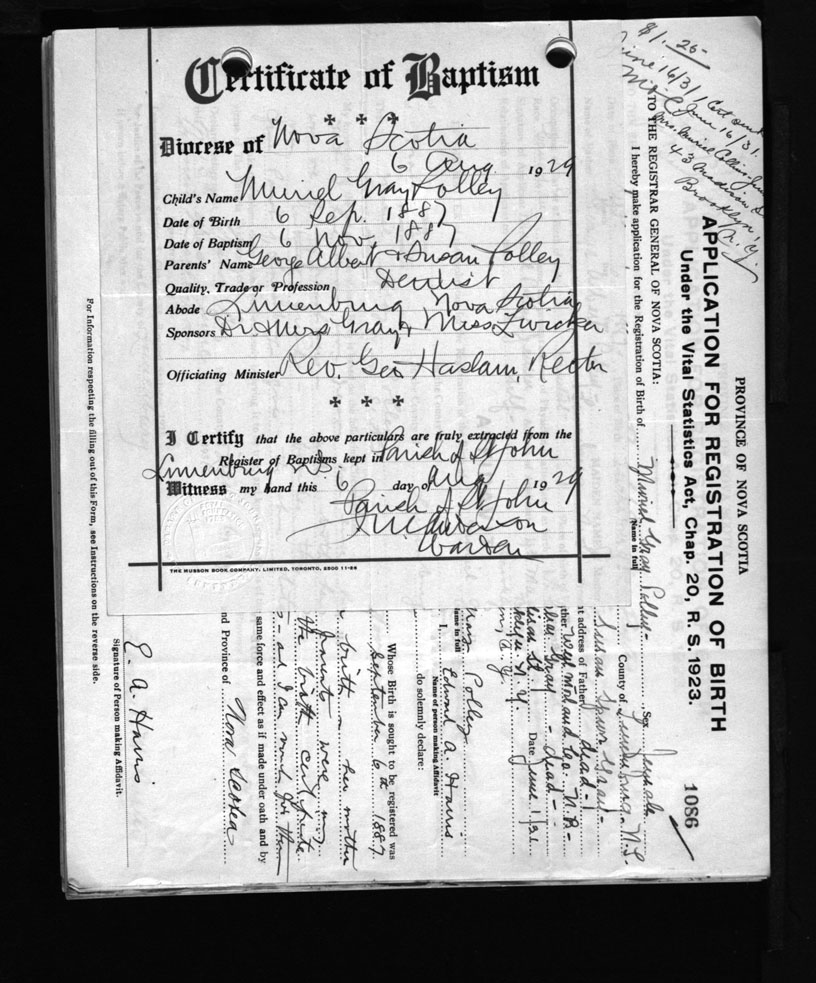 Certificate of Baptism
Diocese of Nova Scotia
6 Aug 1929
Child's Name Muriel Gray Polley
Date of Birth 6 Sep. 1887
Date of Baptism 6 Nov. 1887
Parents' Name George Albert & Susan Polley
Quality, Trade or Profession Dentist
Abode Lunenburg Nova Scotia
Sponsors Dr & Mrs Gray & Miss Zwicker
Officiating Minister Rev. Geo Haslam, Rector
I Certify that the above particulars are truly extracted from the
Register of Baptisms kept in Parish of St John
Lunenburg N.S.
Witness my hand this 6 day of Aug 1929
Parish of St John
Warden
THE MUSSON BOOK COMPANY, LIMITED, TORONTO,
$1.25
June 16/31
Cert sent
June 16/31.
Mrs. Muriel
43 Madison St
Brooklyn
N.Y.
PROVINCE OF NOVA SCOTIA
APPLICATION FOR REGISTRATION OF BIRTH
Under the Vital Statistics Act, Chap. 20, R. S. 1923.
1086
TO THE REGISTRAR GENERAL OF NOVA SCOTIA:
I hereby make application for the Registration of Birth of Muriel Gray Polley
Name in full
Sex Female
County of Lunenburg - N.S.
Susan Gray
address of Father dead
Westmorland Co. N.B.
Gray - dead
N.Y. Date June 1/31
Polley
name in full
I, Edward A. Harris
Name of person making Affidavit
do solemnly declare:
Whose Birth is sought to be registered was
September 6th 1887
birth her mother
were my
the birth certificate
and I can vouch for them
same force and effect as if made under oath and by
nd Province of Nova Scotia
E. A. Harris
Signature of Person making Affidavit.
For Information respecting the filling out of this Form, see Instructions on the reverse side.